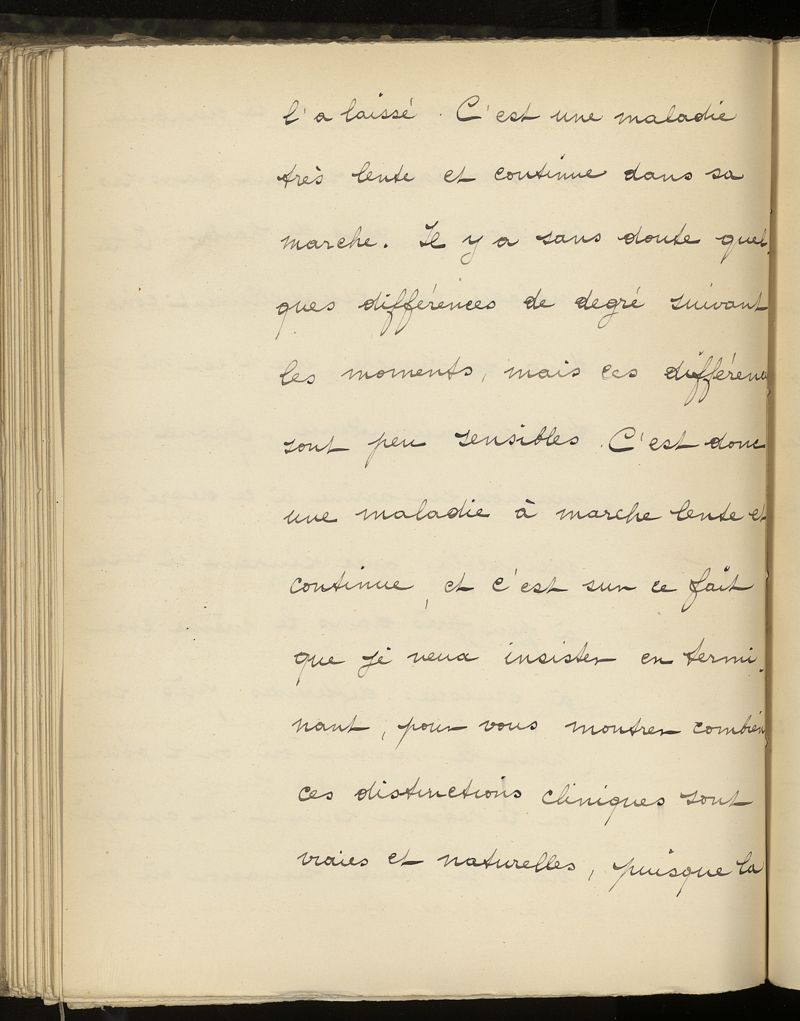 l'a laissé. C'est une maladie
très lente et continue dans sa
marche. Il y a sans doute quel-
ques différences de degré suivant
les moments, mais ces différences
sont peu sensibles. C'est donc
une maladie à marche lente et
continue, et c'est sur ce fait
que je veux insister en termi-
nant, pour vous montrer combien
ces distinctions cliniques sont
vraies et naturelles, puisque la